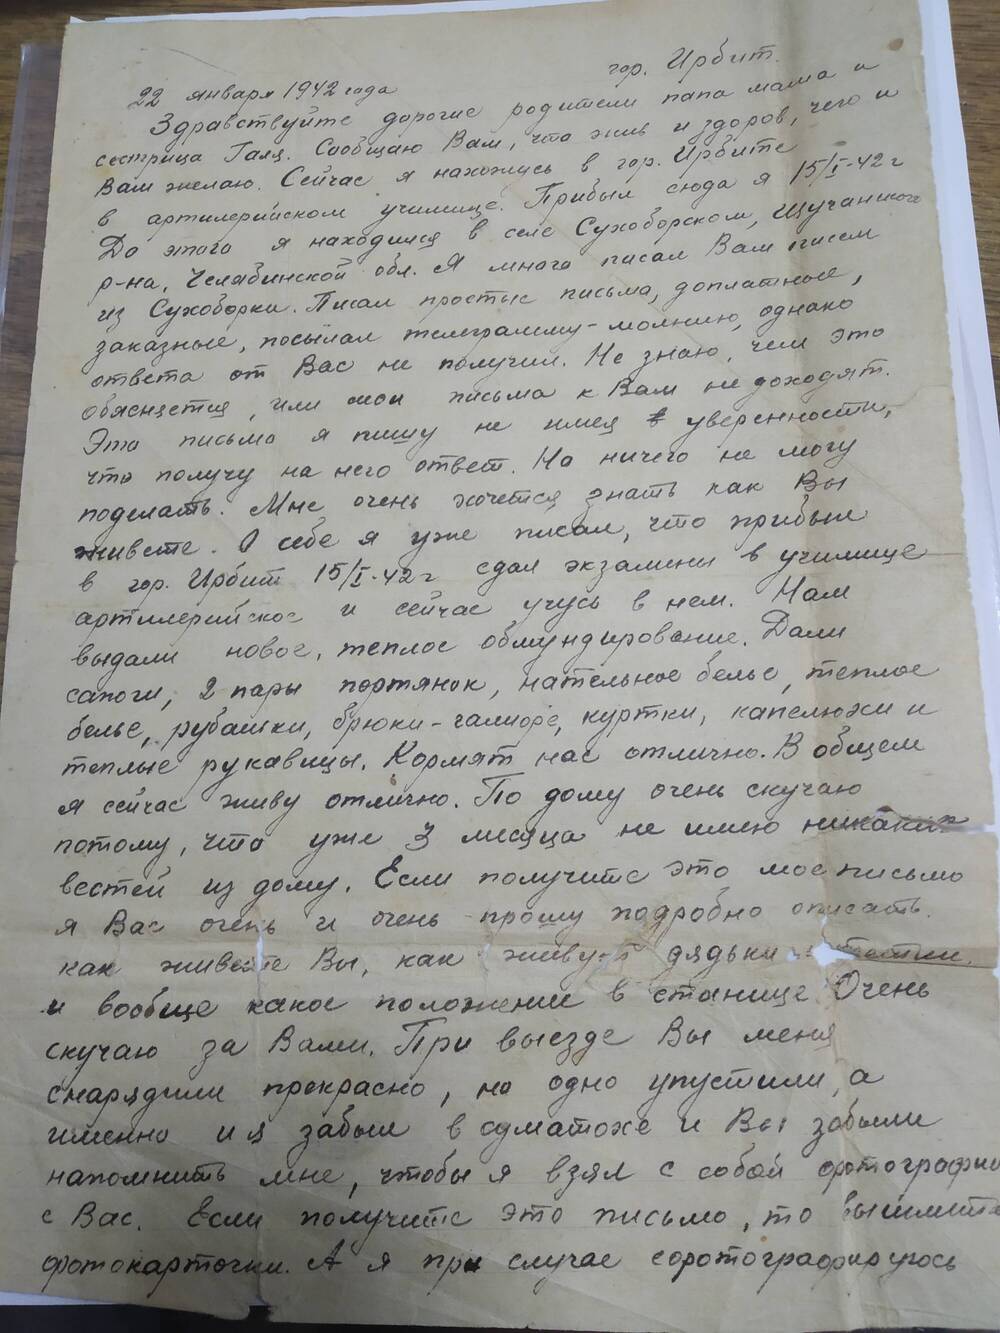 22 января 1942 года гор. Ирбит.
Здравствуйте дорогие родители папа мама и
сестрица Галя. Сообщаю Вам, что жив и здоров, чего и
Вам желаю. Сейчас я нахожусь в гор. Ирбите
в артилерийском училище. Прибыл сюда я 15/I-42 г
До этого я находился в селе Сухоборском, Щучанского
р-на, Челябинской обл. Я много писал Вам писем
из Сухоборки. Писал простые письма, доплатные,
заказные, посылал телеграмму-молнию, однако
ответа от Вас не получил. Не знаю, чем это
обясняется, или мои письма к Вам не доходят.
Это письмо я пишу не имея в уверенности,
что получу на него ответ. Но ничего не могу
поделать. Мне очень хочется знать как Вы
живете. О себе я уже писал, что прибыл
в гор. Ирбит 15/I-42 г сдал экзамены в училище
артилерийское и сейчас учусь в нем. Нам
выдали новое, теплое обмундирование. Дали
сапоги, 2 пары портянок, нательное белье, теплое
белье, рубашки, брюки-галифе, куртки, капелюхи и
теплые рукавицы. Кормят нас отлично. В общем
я сейчас живу отлично. По дому очень скучаю
потому, что уже 3 месяца не имею никаких
вестей из дому. Если получите это мое письмо
я Вас очень и очень прошу подробно описать
как живете Вы, как живут дядьки и тетки
и вообще какое положение в станице. Очень
скучаю за Вами. При выезде Вы меня
снарядили прекрасно, но одно упустили, а
именно и я забыл в суматохе и Вы забыли
напомнить мне, чтобы я взял с собой фотографии
с Вас. Если получите это письмо, то вышлите
фотокарточки. А я при случае сфотографируюсь